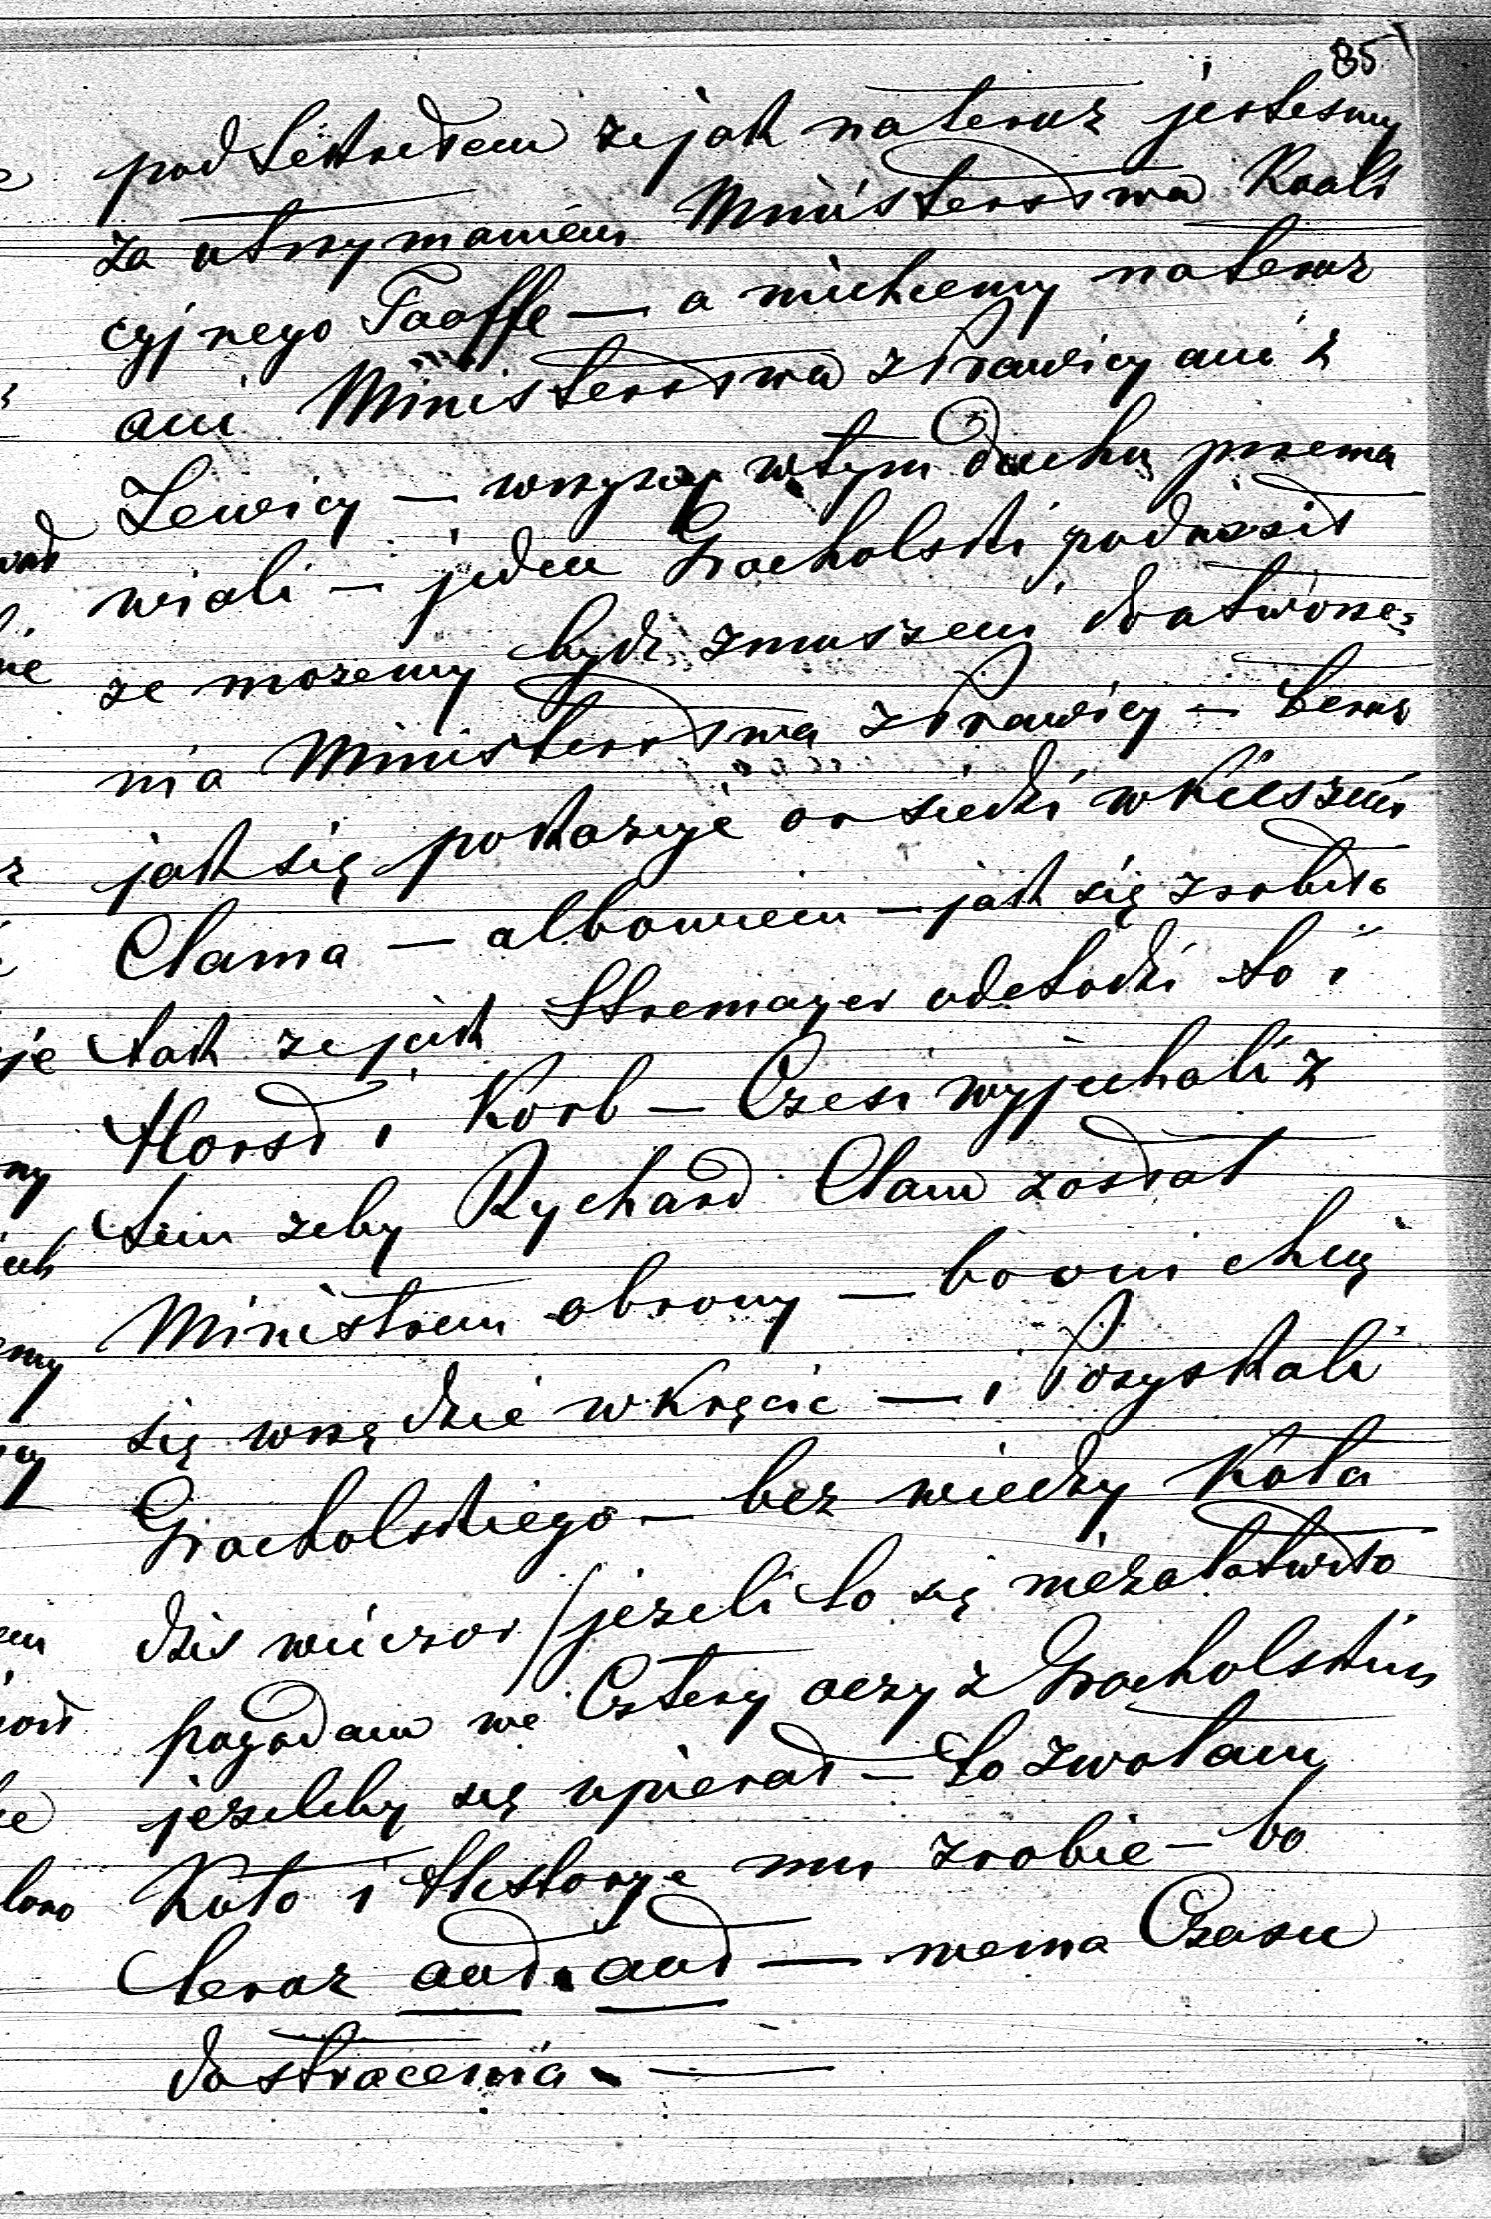 85
pod Sekretem ze jak nateraz jestesmy
za utrzymaniem Ministerstwa Koali
cyjnego Taaffe — a niechcemy nateraz
ani Ministerstwa z Prawicy ani z
Lewicy — wszyscy w tym duchu przema
wiali — jeden Grocholski podnosił
ze mozemy bydz zmuszeni do utworze,
nia Ministerstwa z Prawicy — teraz
jak się pokazuje on siedzi w Kieszeni
Clama — albowiem — jak się zrobiło
tak ze jak Stremayer odchodzi to i
Horst i Korb — Czesi wyjechali z
tem zeby Rychard Clam został
Ministrem obrony — bo oni chcą
się wszędzie wkręcic — i Pozyskali
Grocholskiego — bez wiedzy Koła
dzis wieczor / jezeli to się niezałatwiło
pogodam we Cztery oczy z Grocholskim
jezeliby się upierał — to zwołam
Koło i Historye mu zrobie — bo
teraz aut. aut — niema Czasu
do stracenia. —